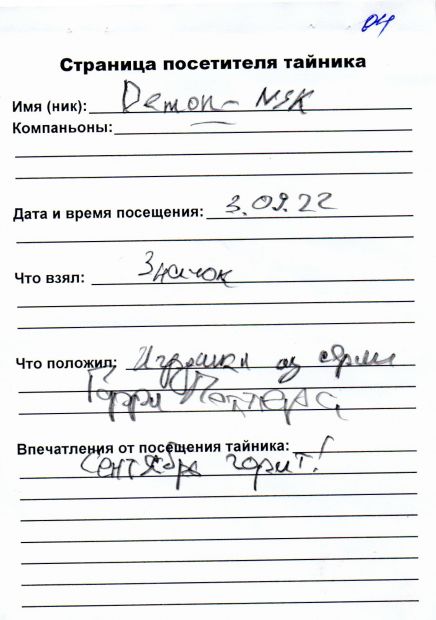 04
Страница посетителя тайника
Имя (ник): Demon-NSK
Компаньоны:
Дата и время посещения: 3.09.22
Что взял: Значок
Что положил: Игрушки из серии
Гарри Поттера
Впечатления от посещения тайника:
Сентябрь горит!